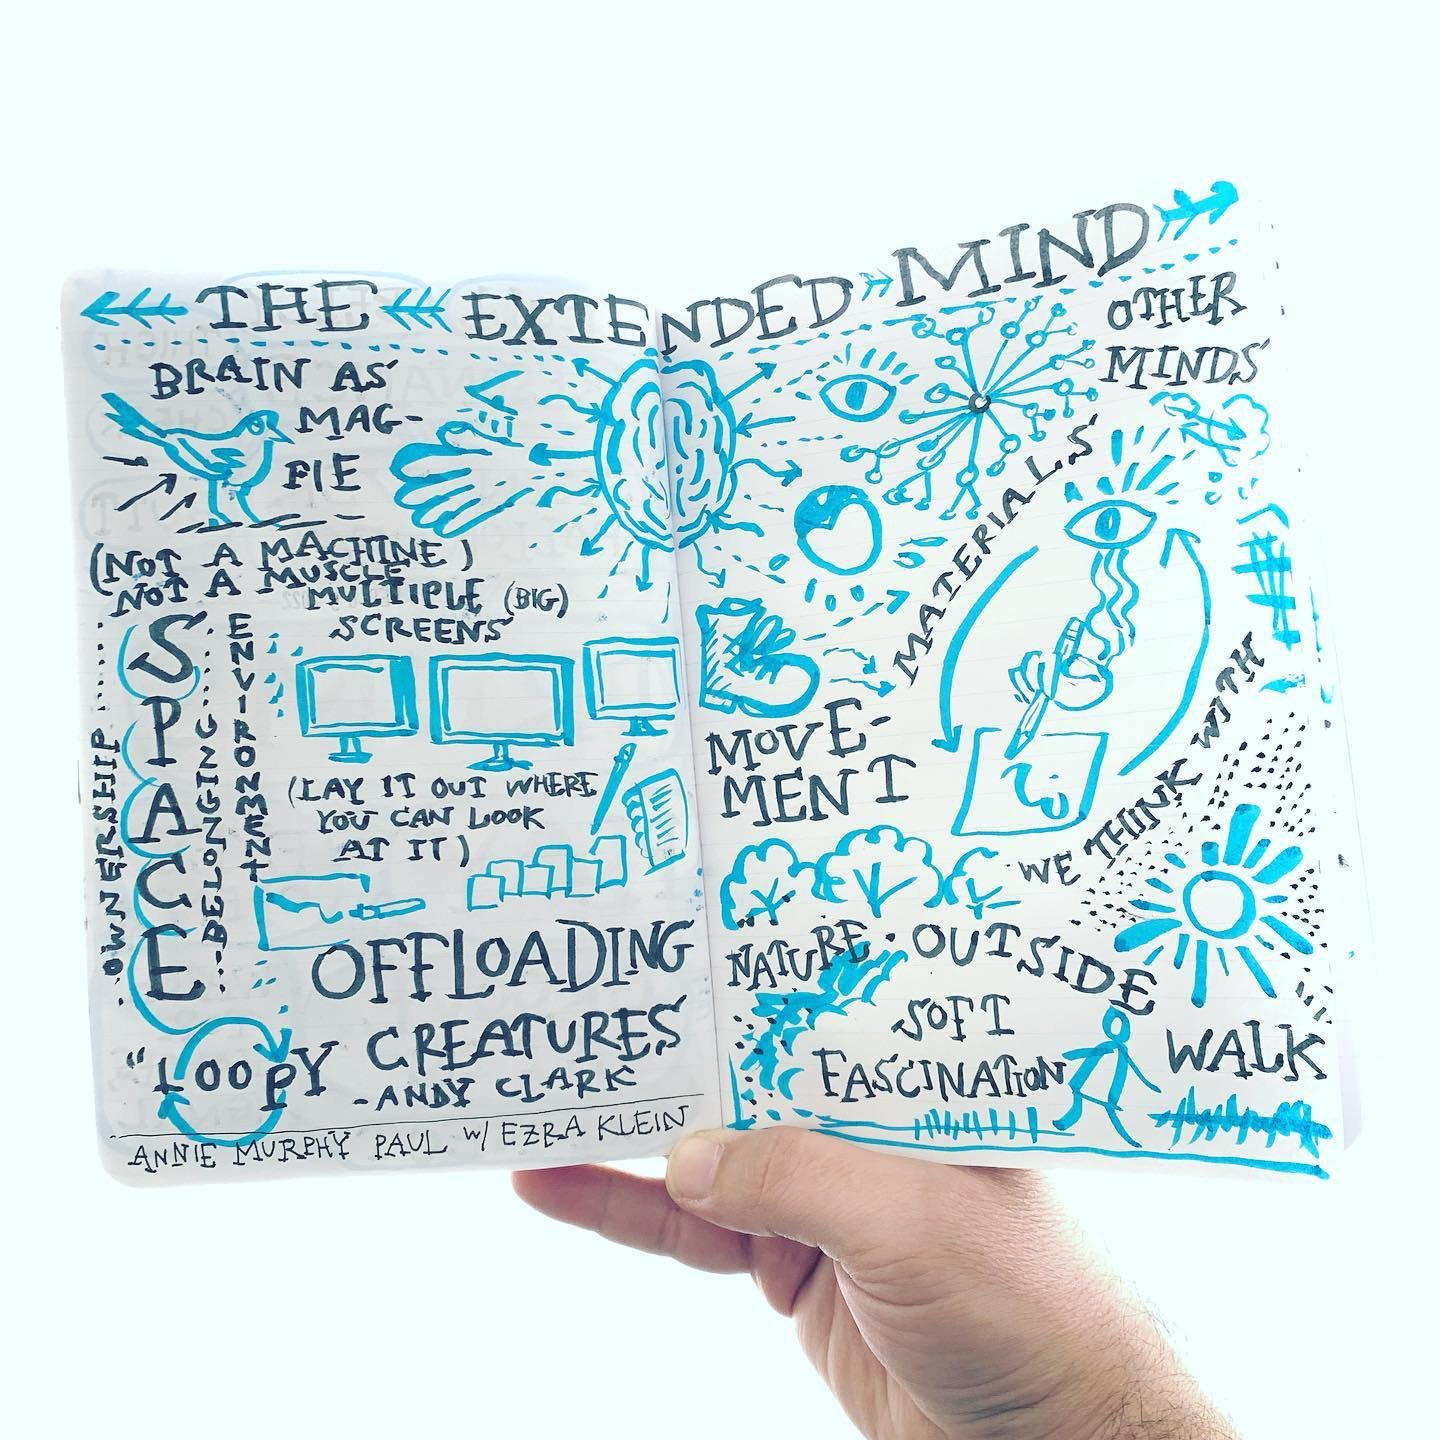 THE EXTENDED MIND
BRAIN AS
MAG-
PIE
(NOT A MACHINE)
NOT A MUSCLE
MULTIPLE (BIG)
SCREENS
OWNERSHIP
SPACE
BELONGING
ENVIRONMENT
(LAY IT OUT WHERE
YOU CAN LOOK
AT IT)
OFFLOADING
"LOOPY
CREATURES
-ANDY CLARK
ANNIE MURPHY PAUL W/ EZRA KLEIN
OTHER
MINDS
MATERIALS
MOVE-
MENT
WE THINK WITH
NATURE · OUTSIDE
SOFT
FASCINATION
WALK